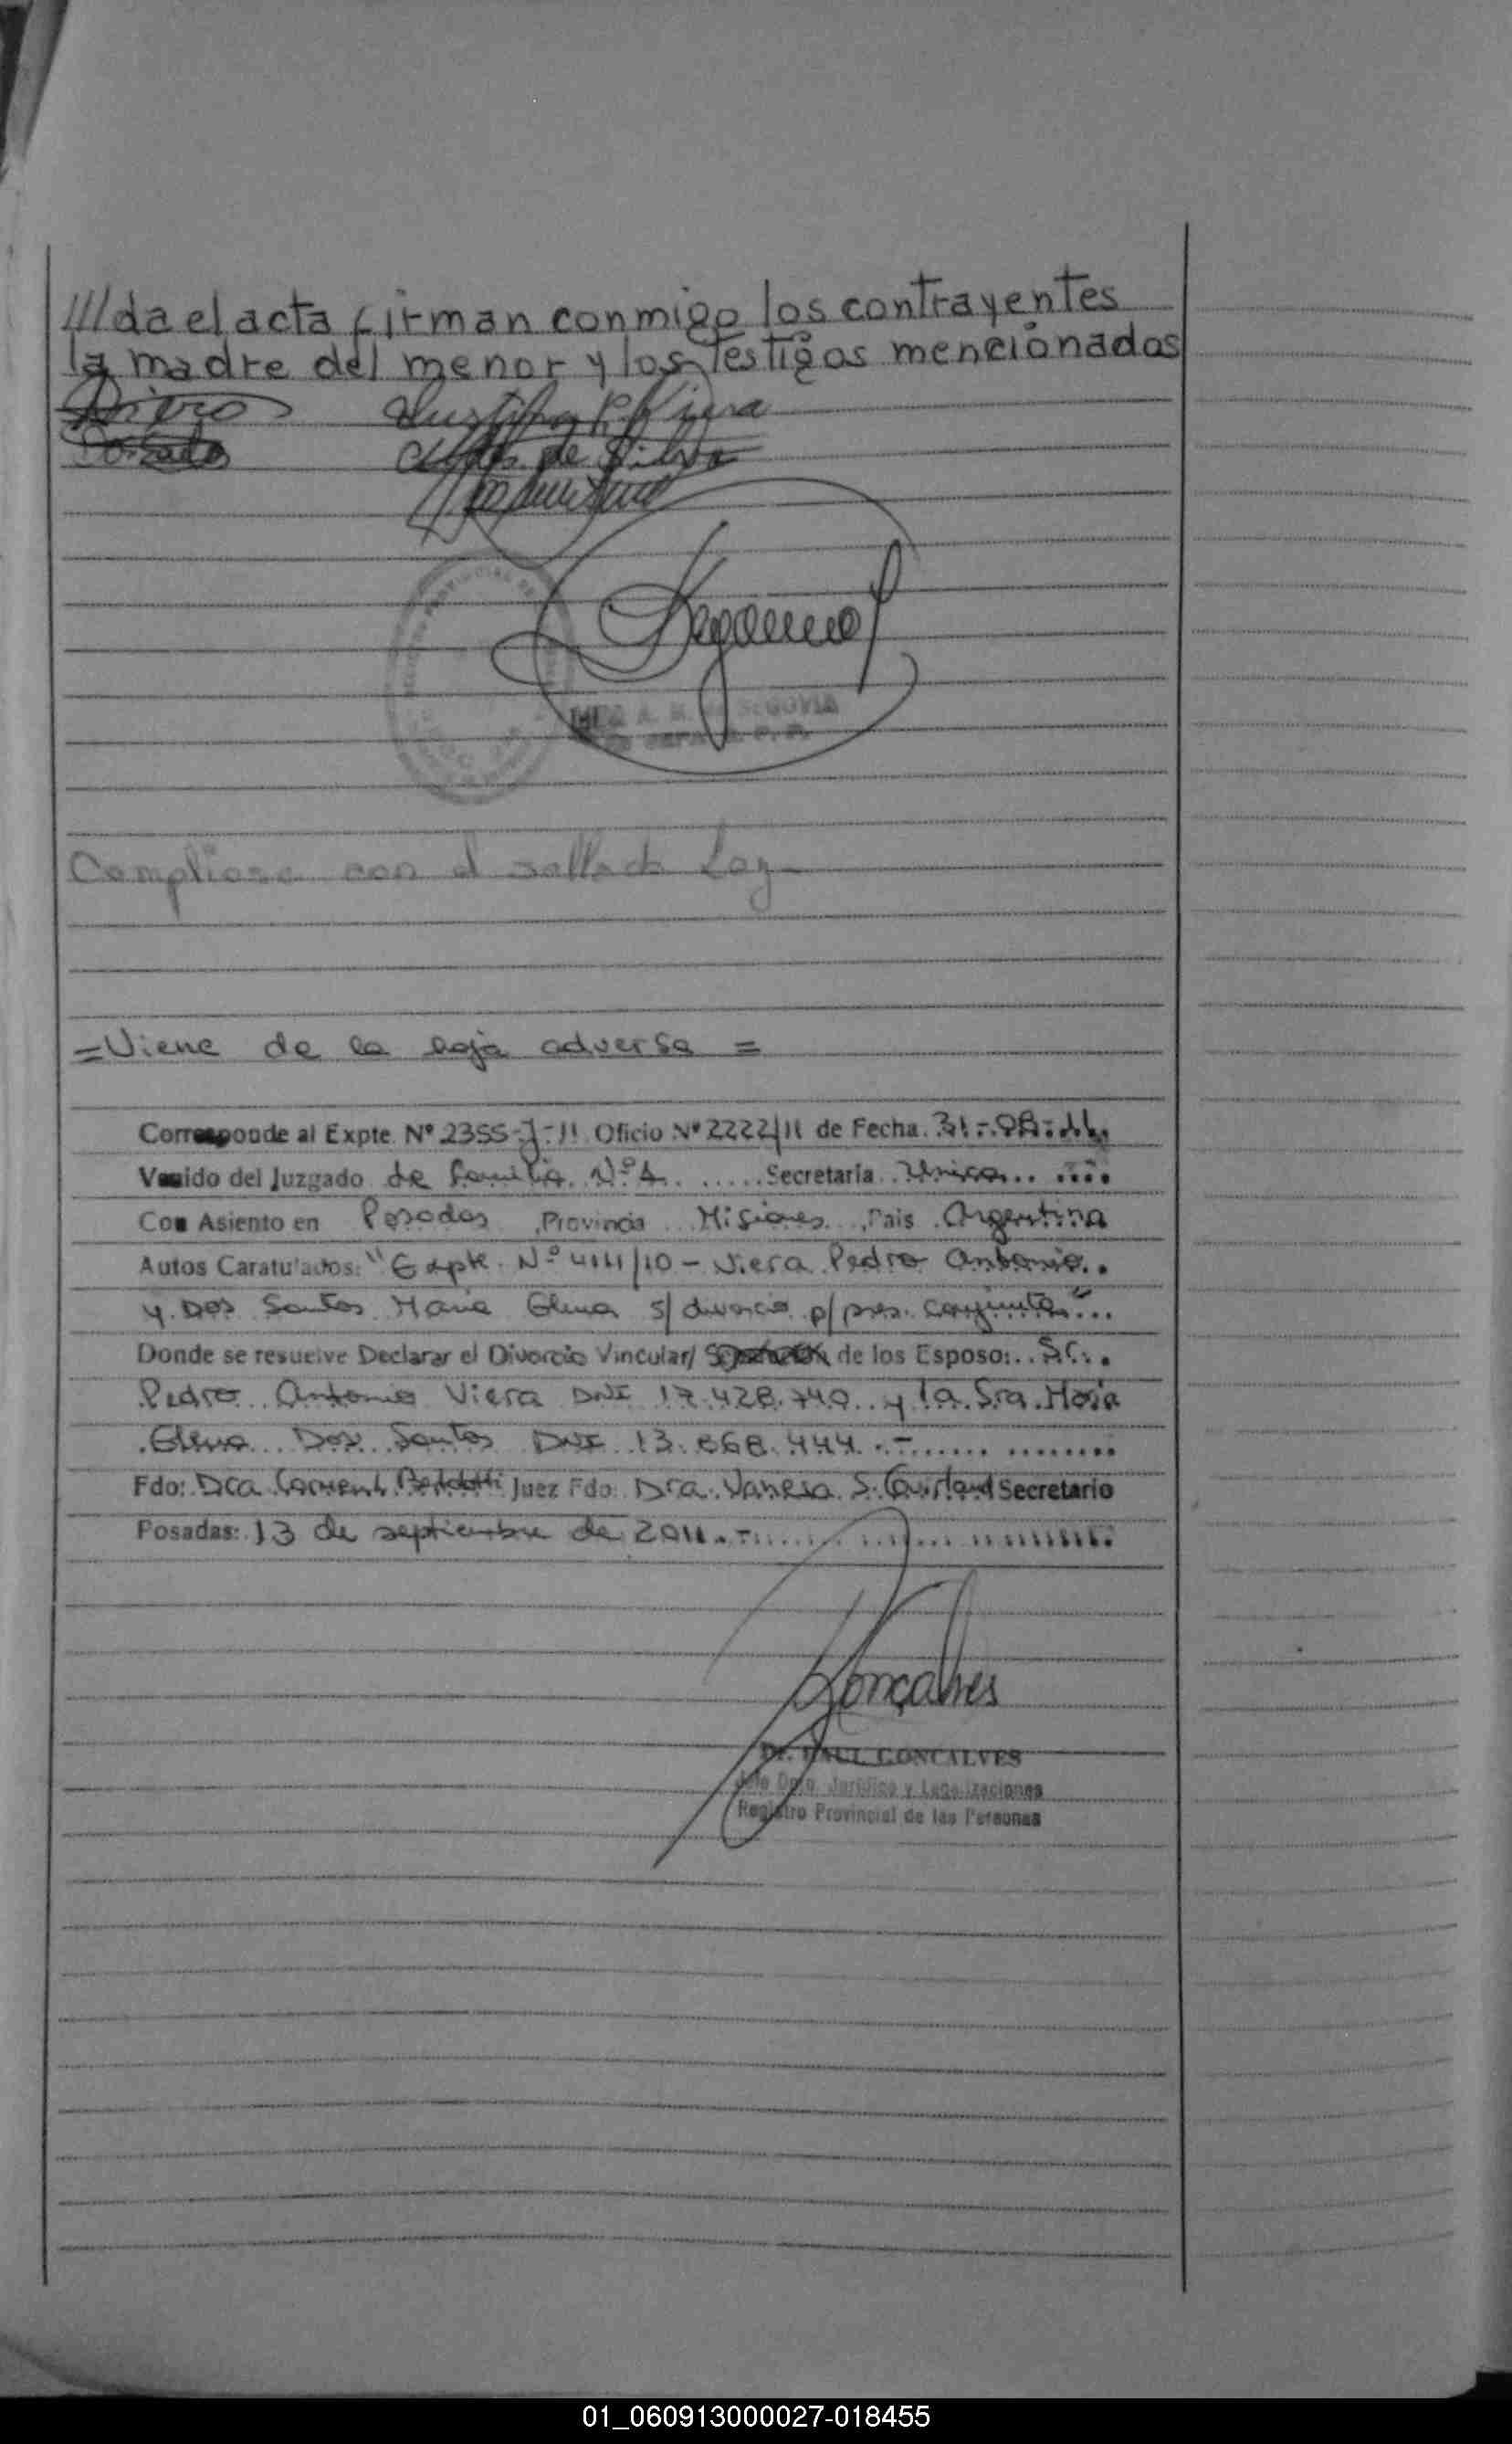 ///da el acta firman conmigo los contrayentes
la madre del menor y los testigos mencionados
Compliose con el sellado Ley
=Viene de la hoja adversa =
Corresponde al Expte. Nº 2355-J-11 Oficio Nº 2222/11 de Fecha 31-08-11.
Venido del Juzgado de familia Nº 1 Secretaría Unica
Con Asiento en Posadas Provincia Misiones País Argentina
Autos Caratulados: "Expte. Nº 4141/10 - Viera Pedro Antonio
y Dos Santos Maria Elena s/ divorcio p/ pres. conjunta"
Donde se resuelve Declarar el Divorcio Vincular/ de los Esposo: Sr.
Pedro Antonio Viera DNI 17.428.740 y la Sra. Maria
Elena Dos Santos DNI 13.868.444.-
Fdo: Dra Juez Fdo. Dra. Vanesa S. Secretario
Posadas: 13 de septiembre de 2011.-
Goncalves
Dr. RAUL GONCALVES
Jefe Dpto. Jurídico y Legalizaciones
Registro Provincial de las Personas
01_060913000027-018455